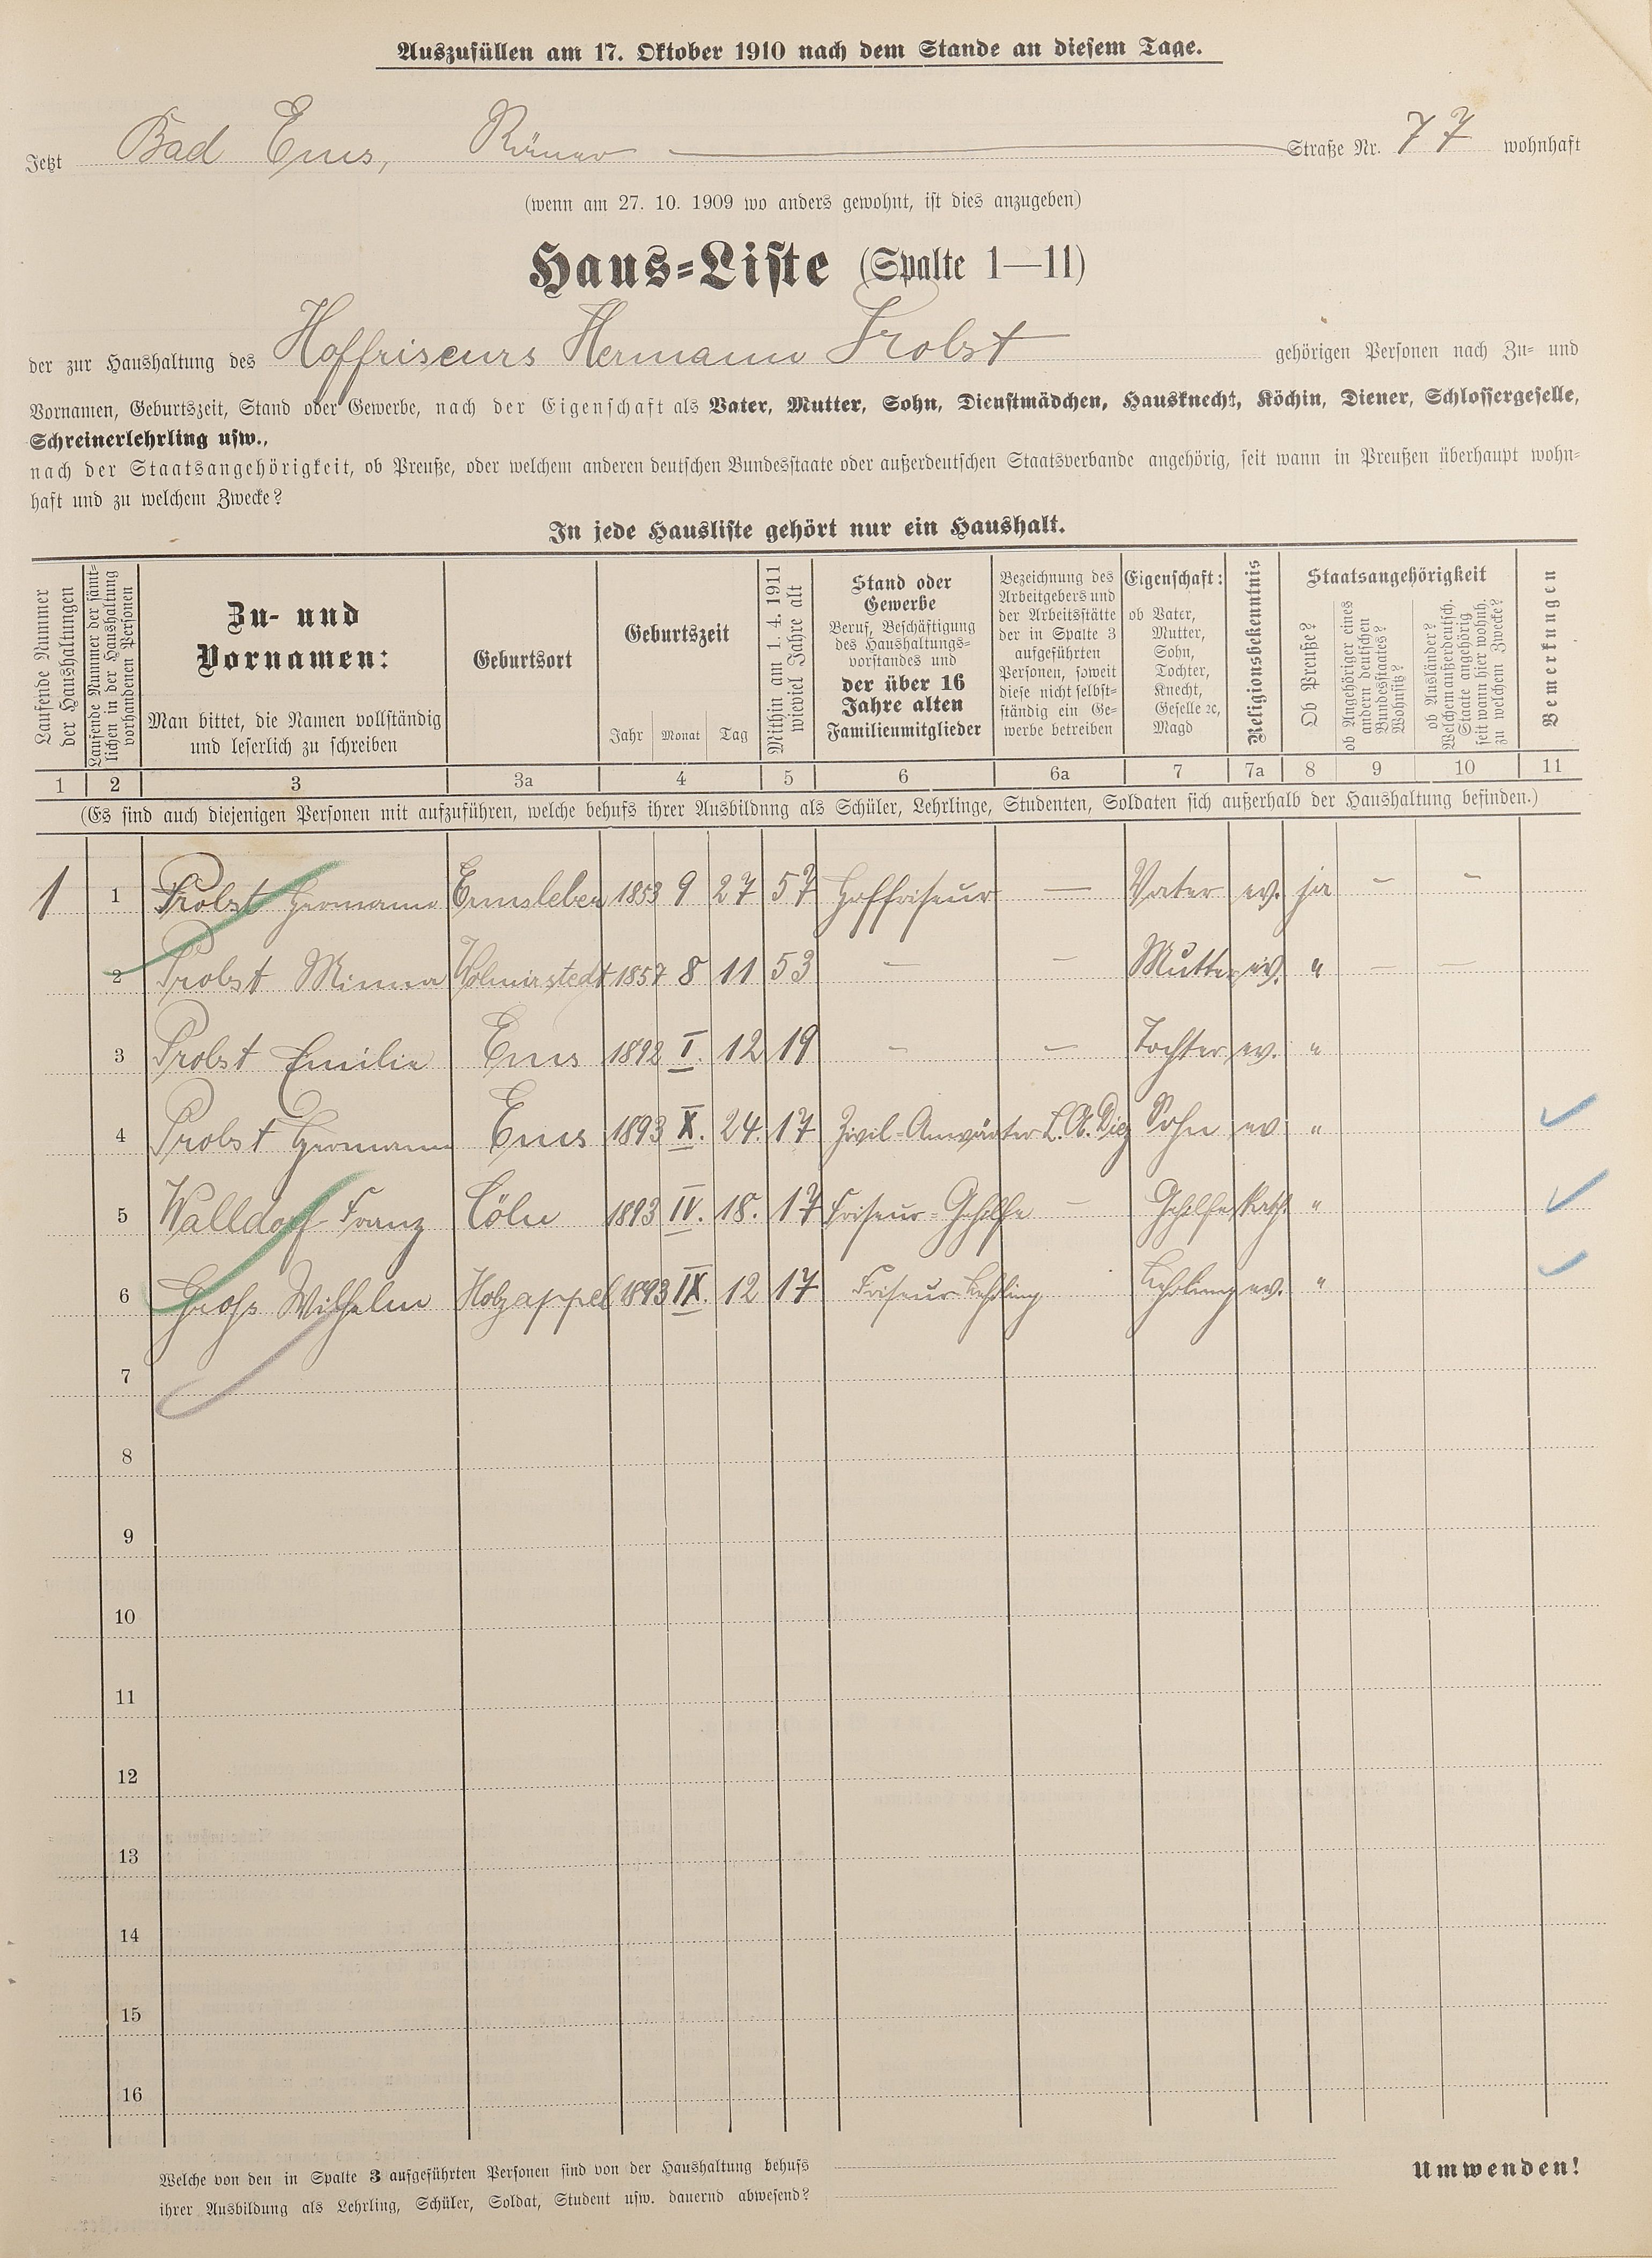 Auszufüllen am 17. Oktober 1910 nach dem Stande an diesem Tage.
Jetzt Bad Ems, Römer Straße Nr. 77 wohnhaft
(wenn am 27. 10. 1909 wo anders gewohnt, ist dies anzugeben)
Haus-Liste (Spalte 1—11)
der zur Haushaltung des Hoffriseurs Hermann Probst gehörigen Personen nach Zu- und
Vornamen, Geburtszeit, Stand oder Gewerbe, nach der Eigenschaft als Vater, Mutter, Sohn, Dienstmädchen, Hausknecht, Köchin, Diener, Schlossergeselle,
Schreinerlehrling usw.,
nach der Staatsangehörigkeit, ob Preuße, oder welchem anderen deutschen Bundesstaate oder außerdeutschen Staatsverbande angehörig, seit wann in Preußen überhaupt wohn-
haft und zu welchem Zwecke?
In jede Hausliste gehört nur ein Haushalt.
Laufende Nummer
der Haushaltungen
Laufende Nummer der sämt-
lichen in der Haushaltung
vorhandenen Personen
Zu- und
Vornamen:
Man bittet, die Namen vollständig
und leserlich zu schreiben
Geburtsort
Geburtszeit
Jahr Monat Tag
Mithin am 1. 4. 1911
wieviel Jahre alt
Stand oder
Gewerbe
Beruf, Beschäftigung
des Haushaltungs-
vorstandes und
der über 16
Jahre alten
Familienmitglieder
Bezeichnung des
Arbeitgebers und
der Arbeitsstätte
der in Spalte 3
aufgeführten
Personen, soweit
diese nicht selbst-
ständig ein Ge-
werbe betreiben
Eigenschaft:
ob Vater,
Mutter,
Sohn,
Tochter,
Knecht,
Geselle ꝛc,
Magd
Religionsbekenntnis
Staatsangehörigkeit
Ob Preuße?
ob Angehöriger eines
andern deutschen
Bundesstaates?
Wohnsitz?
ob Ausländer?
Welchem außerdeutsch.
Staate angehörig,
seit wann hier wohnh.
zu welchem Zwecke?
Bemerkungen
1 2 3 3a 4 5 6 6a 7 7a 8 9 10 11
(Es sind auch diejenigen Personen mit aufzuführen, welche behufs ihrer Ausbildung als Schüler, Lehrlinge, Studenten, Soldaten sich außerhalb der Haushaltung befinden.)
1 1 Probst Hermann Ermsleben 1853 9 27 57 Hoffriseur — Vater ev. ja – –
2 Probst Minna Wolmirstedt 1857 8 11 53 — – Mutter ev. " – —
3 Probst Emilie Ems 1892 I. 12 19 – – Tochter ev. "
4 Probst Hermann Ems 1893 X. 24. 17 Zivil-Anwärter L.A. Diez Sohn ev "
5 Walldorf Franz Cöln 1893 IV. 18. 17 Friseur-Gehilfe – Gehilfe Kath "
6 Groß Wilhelm Holzappel 1893 IX. 12 17 Friseur-Lehrling Lehrling ev. "
7
8
9
10
11
12
13
14
15
16
Welche von den in Spalte 3 aufgeführten Personen sind von der Haushaltung behufs
ihrer Ausbildung als Lehrling, Schüler, Soldat, Student usw. dauernd abwesend?
Umwenden!